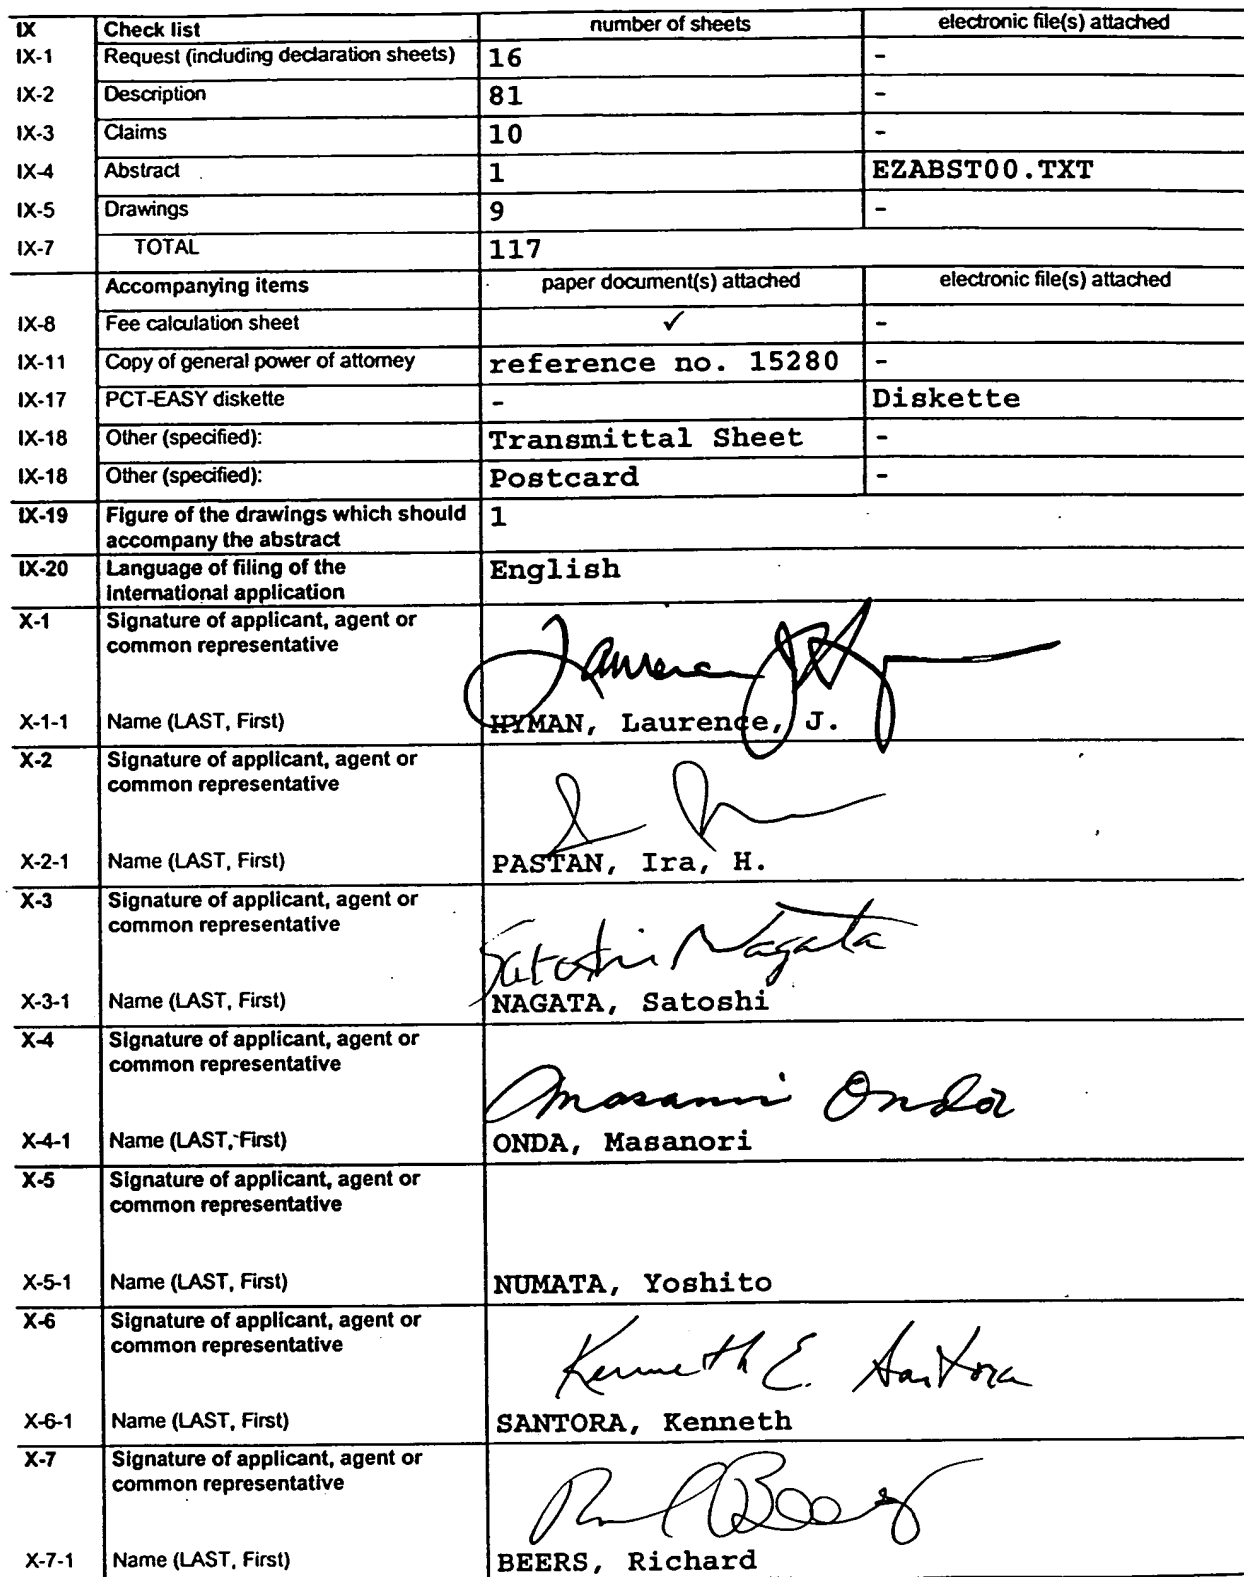 IX Check list number of sheets electronic file(s) attached
IX-1 Request (including declaration sheets) 16 -
IX-2 Description 81 -
IX-3 Claims 10 -
IX-4 Abstract 1 EZABST00.TXT
IX-5 Drawings 9 -
IX-7 TOTAL 117
Accompanying items paper document(s) attached electronic file(s) attached
IX-8 Fee calculation sheet ✓ -
IX-11 Copy of general power of attorney reference no. 15280 -
IX-17 PCT-EASY diskette - Diskette
IX-18 Other (specified): Transmittal Sheet -
IX-18 Other (specified): Postcard -
IX-19 Figure of the drawings which should 1
accompany the abstract
IX-20 Language of filing of the English
international application
X-1 Signature of applicant, agent or
common representative
X-1-1 Name (LAST, First) HYMAN, Laurence, J.
X-2 Signature of applicant, agent or
common representative
X-2-1 Name (LAST, First) PASTAN, Ira, H.
X-3 Signature of applicant, agent or
common representative
Satoshi Nagata
X-3-1 Name (LAST, First) NAGATA, Satoshi
X-4 Signature of applicant, agent or
common representative
Masanori Onda
X-4-1 Name (LAST, First) ONDA, Masanori
X-5 Signature of applicant, agent or
common representative
X-5-1 Name (LAST, First) NUMATA, Yoshito
X-6 Signature of applicant, agent or
common representative
Kenneth E. Santora
X-6-1 Name (LAST, First) SANTORA, Kenneth
X-7 Signature of applicant, agent or
common representative
X-7-1 Name (LAST, First) BEERS, Richard